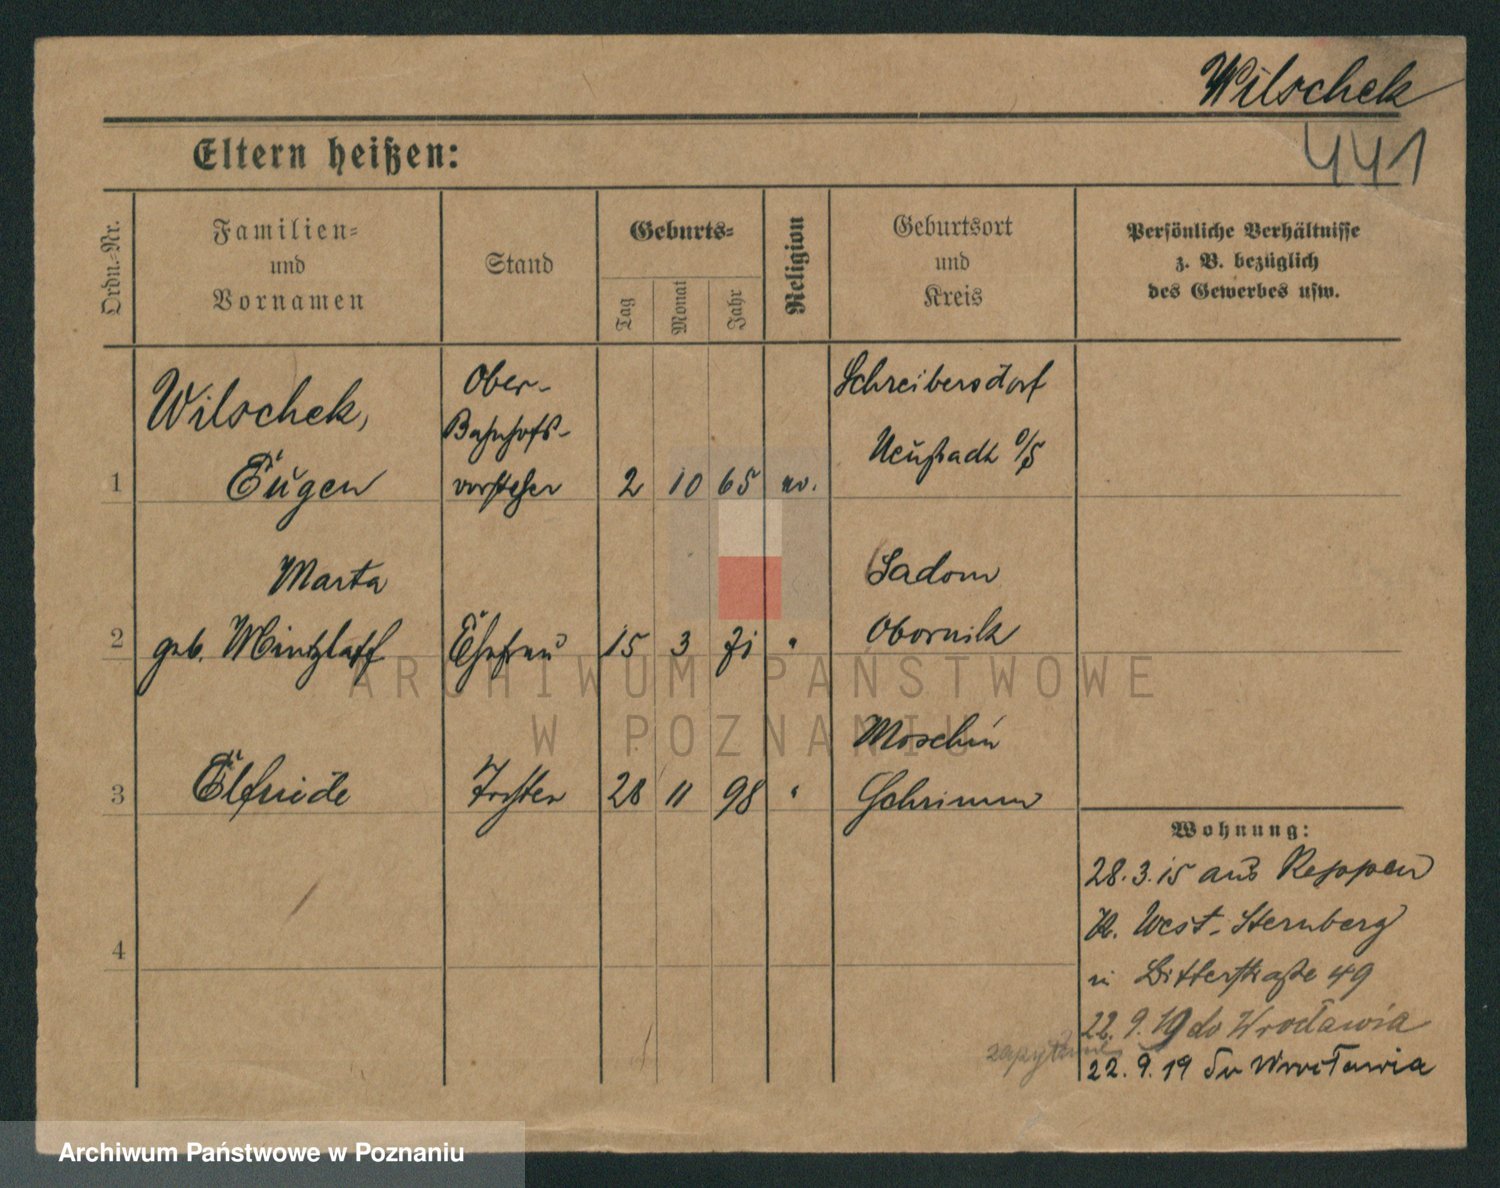 Wilschek
441
Eltern heißen:
Ordn.-Nr.
Familien- und Vornamen
Stand
Geburts-
Tag
Monat
Jahr
Religion
Geburtsort und Kreis
Persönliche Verhältnisse
z. B. bezüglich
des Gewerbes usw.
1
Wilschek,
Eugen
Ober-
Bahnhofs-
vorsteher
2 10 65 ev.
Schreibersdorf
Neustadt O/S
2
Marta
geb. Mintzlaff
Ehefrau
15 3 71 "
Sadom
Obornik
3
Elfriede
Tochter
28 11 98 "
Moschin
Schrimm
4
Wohnung:
28.3.15 aus Reppen
Kr. West-Sternberg
in Bitterstraße 49
22.9.19 do Wrocławia
zapytanie
22.9.19 do Wrocławia
ARCHIWUM PAŃSTWOWE
W POZNANIU
Archiwum Państwowe w Poznaniu